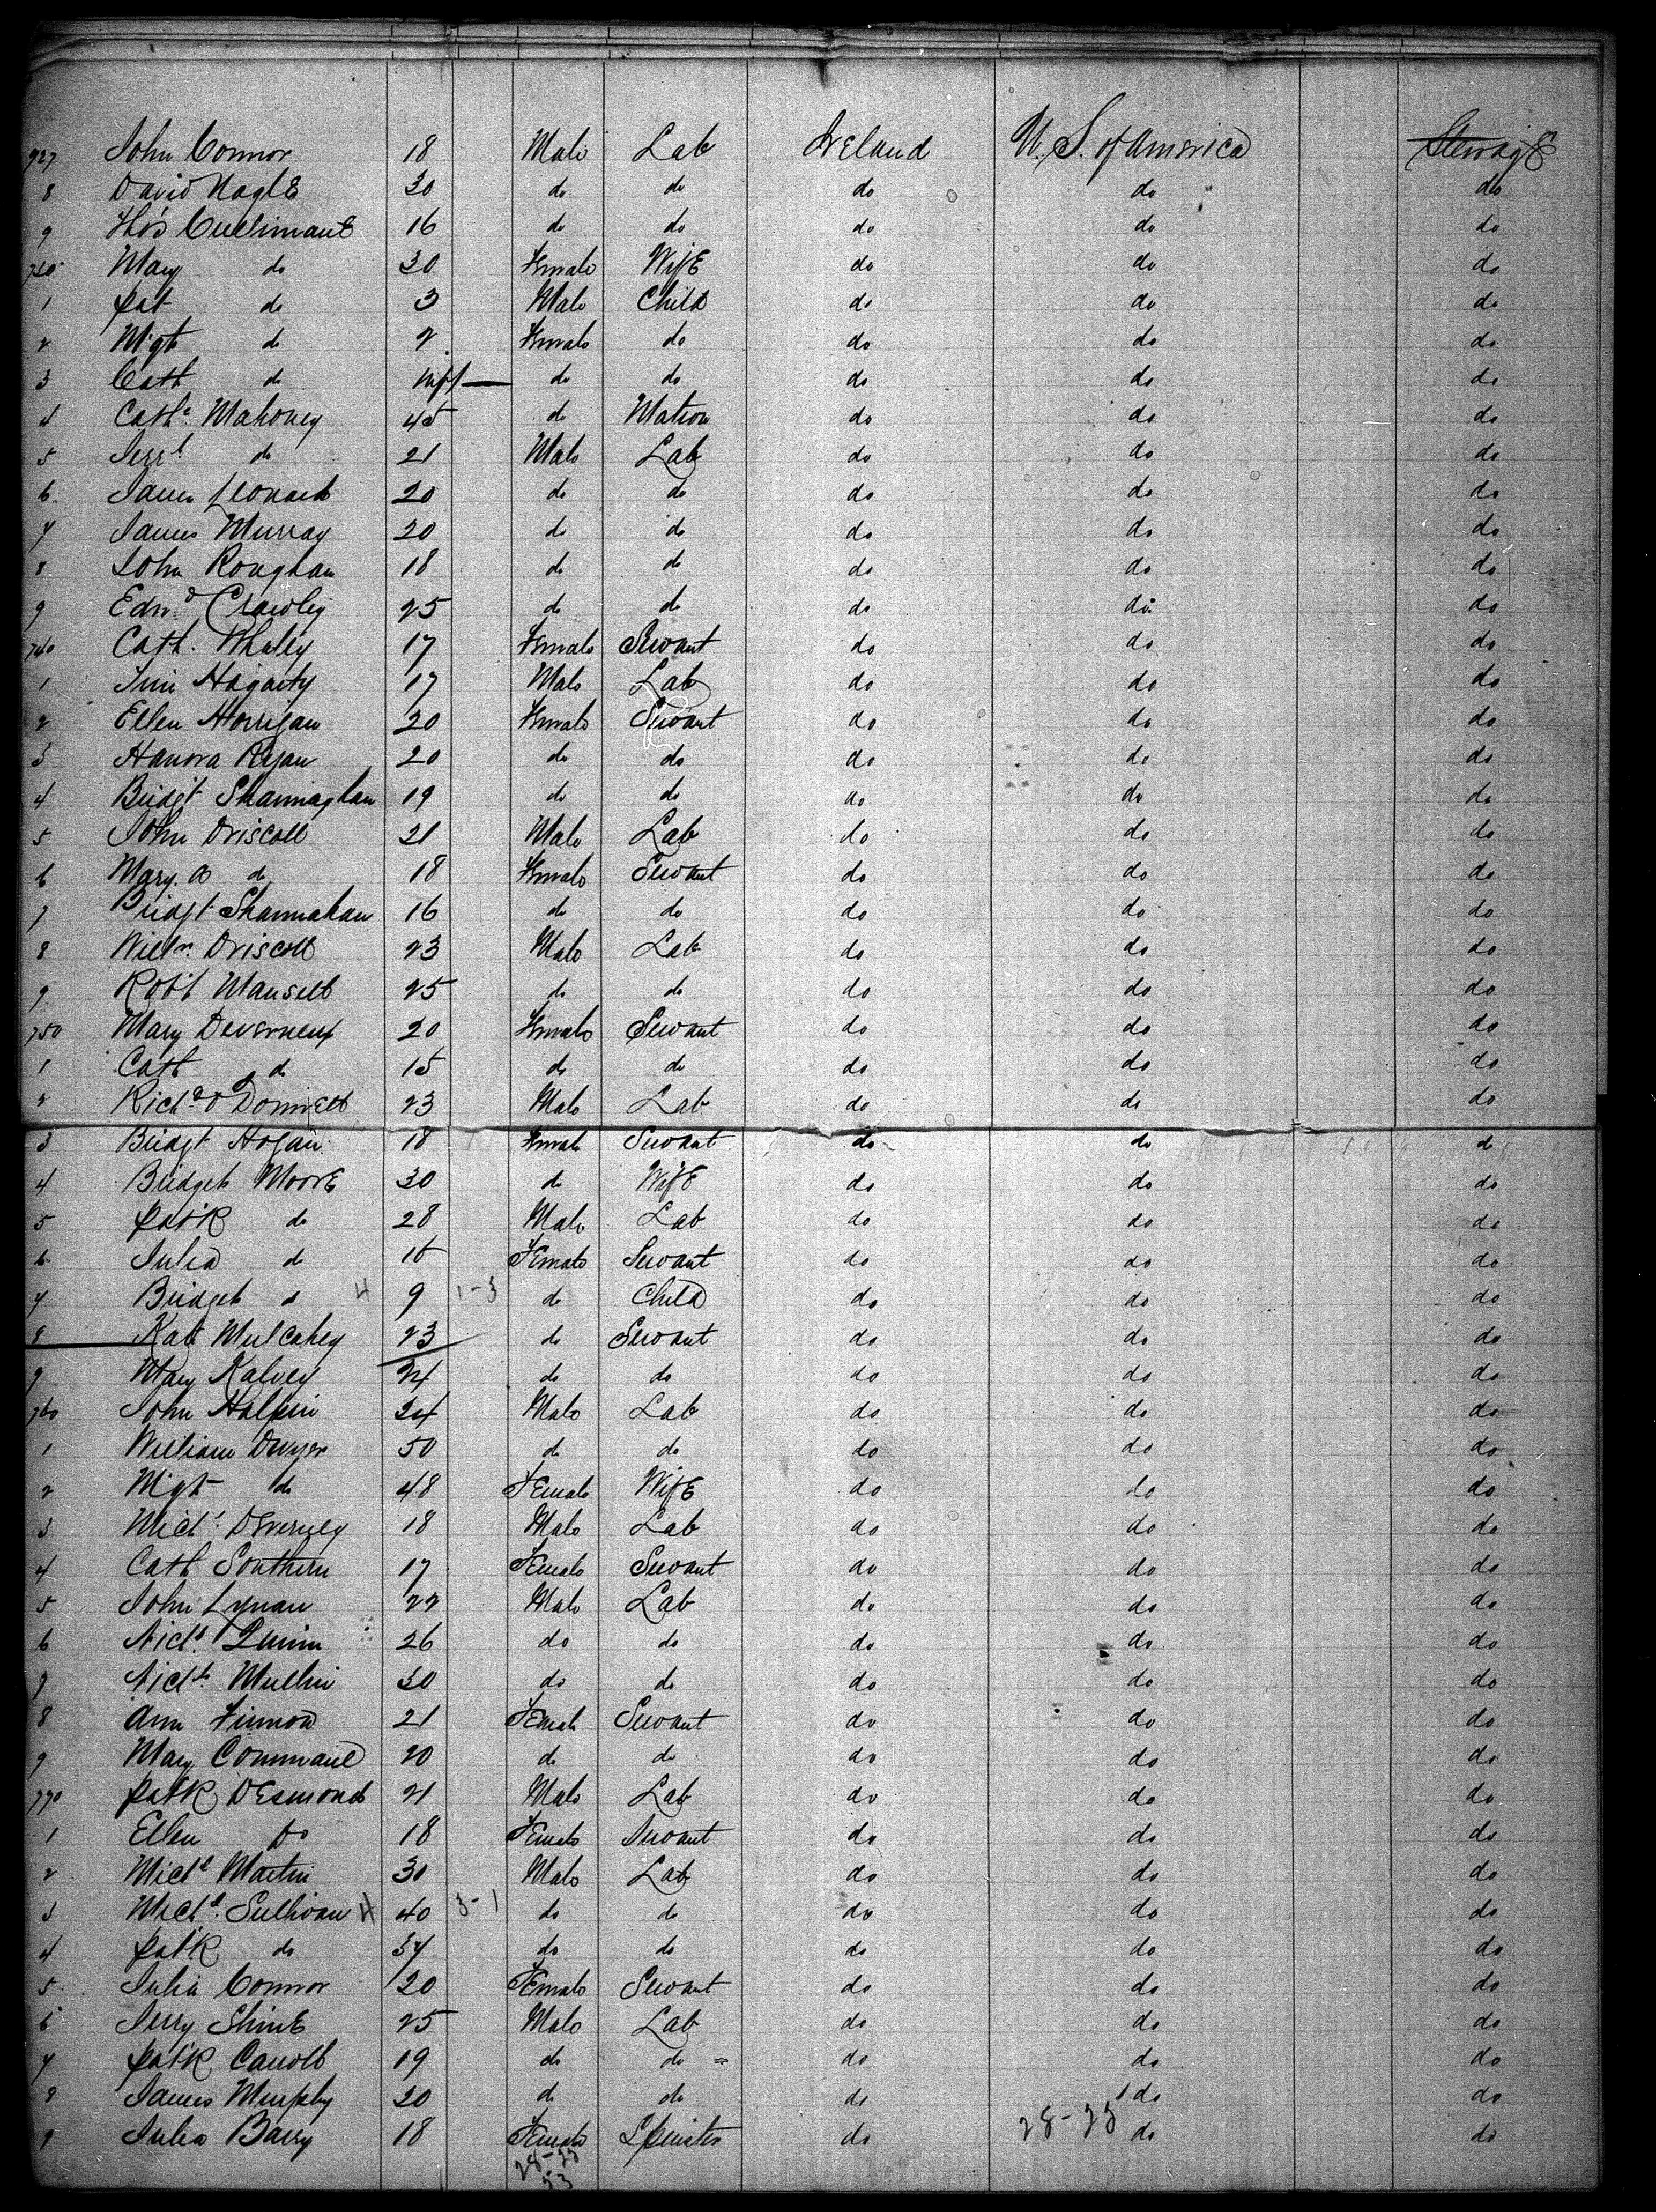 727 John Connor 18 Male Lab Ireland U. S. of America Steerage
8 David Nagle 30 do do do do do
9 Thos 16 do do do do do
730 Mary do 30 Female Wife do do do
1 Pat do 3 Male Child do do do
2 Mgt do 2 Female do do do do
3 Cath do inft do do do do do
4 Cathe Mahoney 45 do Matron do do do
5 Jerrh do 21 Male Lab do do do
6 James Leonard 20 do do do do do
7 James Murray 20 do do do do do
8 John Roughan 18 do do do do do
9 Edwd Crawley 25 do do do do do
740 Cath. Whaley 17 Female Servant do do do
1 Jim Hagarty 17 Male Lab do do do
2 Ellen Horrigan 20 Female Servant do do do
3 Hanora Ryan 20 do do do do do
4 Bridgt Shannaghan 19 do do do do do
5 John Driscoll 21 Male Lab do do do
6 Mary. do 18 Female Servant do do do
7 Bridgt Shannahan 16 do do do do do
8 Willm Driscoll 23 Male Lab do do do
9 Robt Mansell 25 do do do do do
750 Mary Deverneux 20 Female Servant do do do
1 Cath do 15 do do do do do
2 Richd O'Donnell 23 Male Lab do do do
3 Bridgt Hogan 18 Female Servant do do do
4 Bridget Moore 30 do Wife do do do
5 Patk do 28 Male Lab do do do
6 Julia do 16 Female Servant do do do
7 Bridget do 4 9 1-3 do Child do do do
8 Kate Mulcahey 23 do Servant do do do
9 Mary Kalvey 24 do do do do do
760 John Halpin 34 Male Lab do do do
1 William Dwyer 50 do do do do do
2 Mgt do 48 Female Wife do do do
3 Michl Deverney 18 Male Lab do do do
4 Cath Southern 17 Female Servant do do do
5 John Lynan 22 Male Lab do do do
6 Nichs Quinn 26 do do do do do
7 Nichs Mullin 30 do do do do do
8 Ann 21 Female Servant do do do
9 Mary 20 do do do do do
770 Patk Desmond 21 Male Lab do do do
1 Ellen Do 18 Female Servant do do do
2 Michl Martin 30 Male Lab do do do
3 Michl Sullivan 4 40 3-1 do do do do do
4 Patk do 37 do do do do do
5 Julia Connor 20 Female Servant do do do
6 Jerry Shine 25 Male Lab do do do
7 Patk Carroll 19 do do do do do
8 James Murphy 20 do do do do do
9 Julia Barry 18 Female Spinster do 28-25 do do
28-28
53